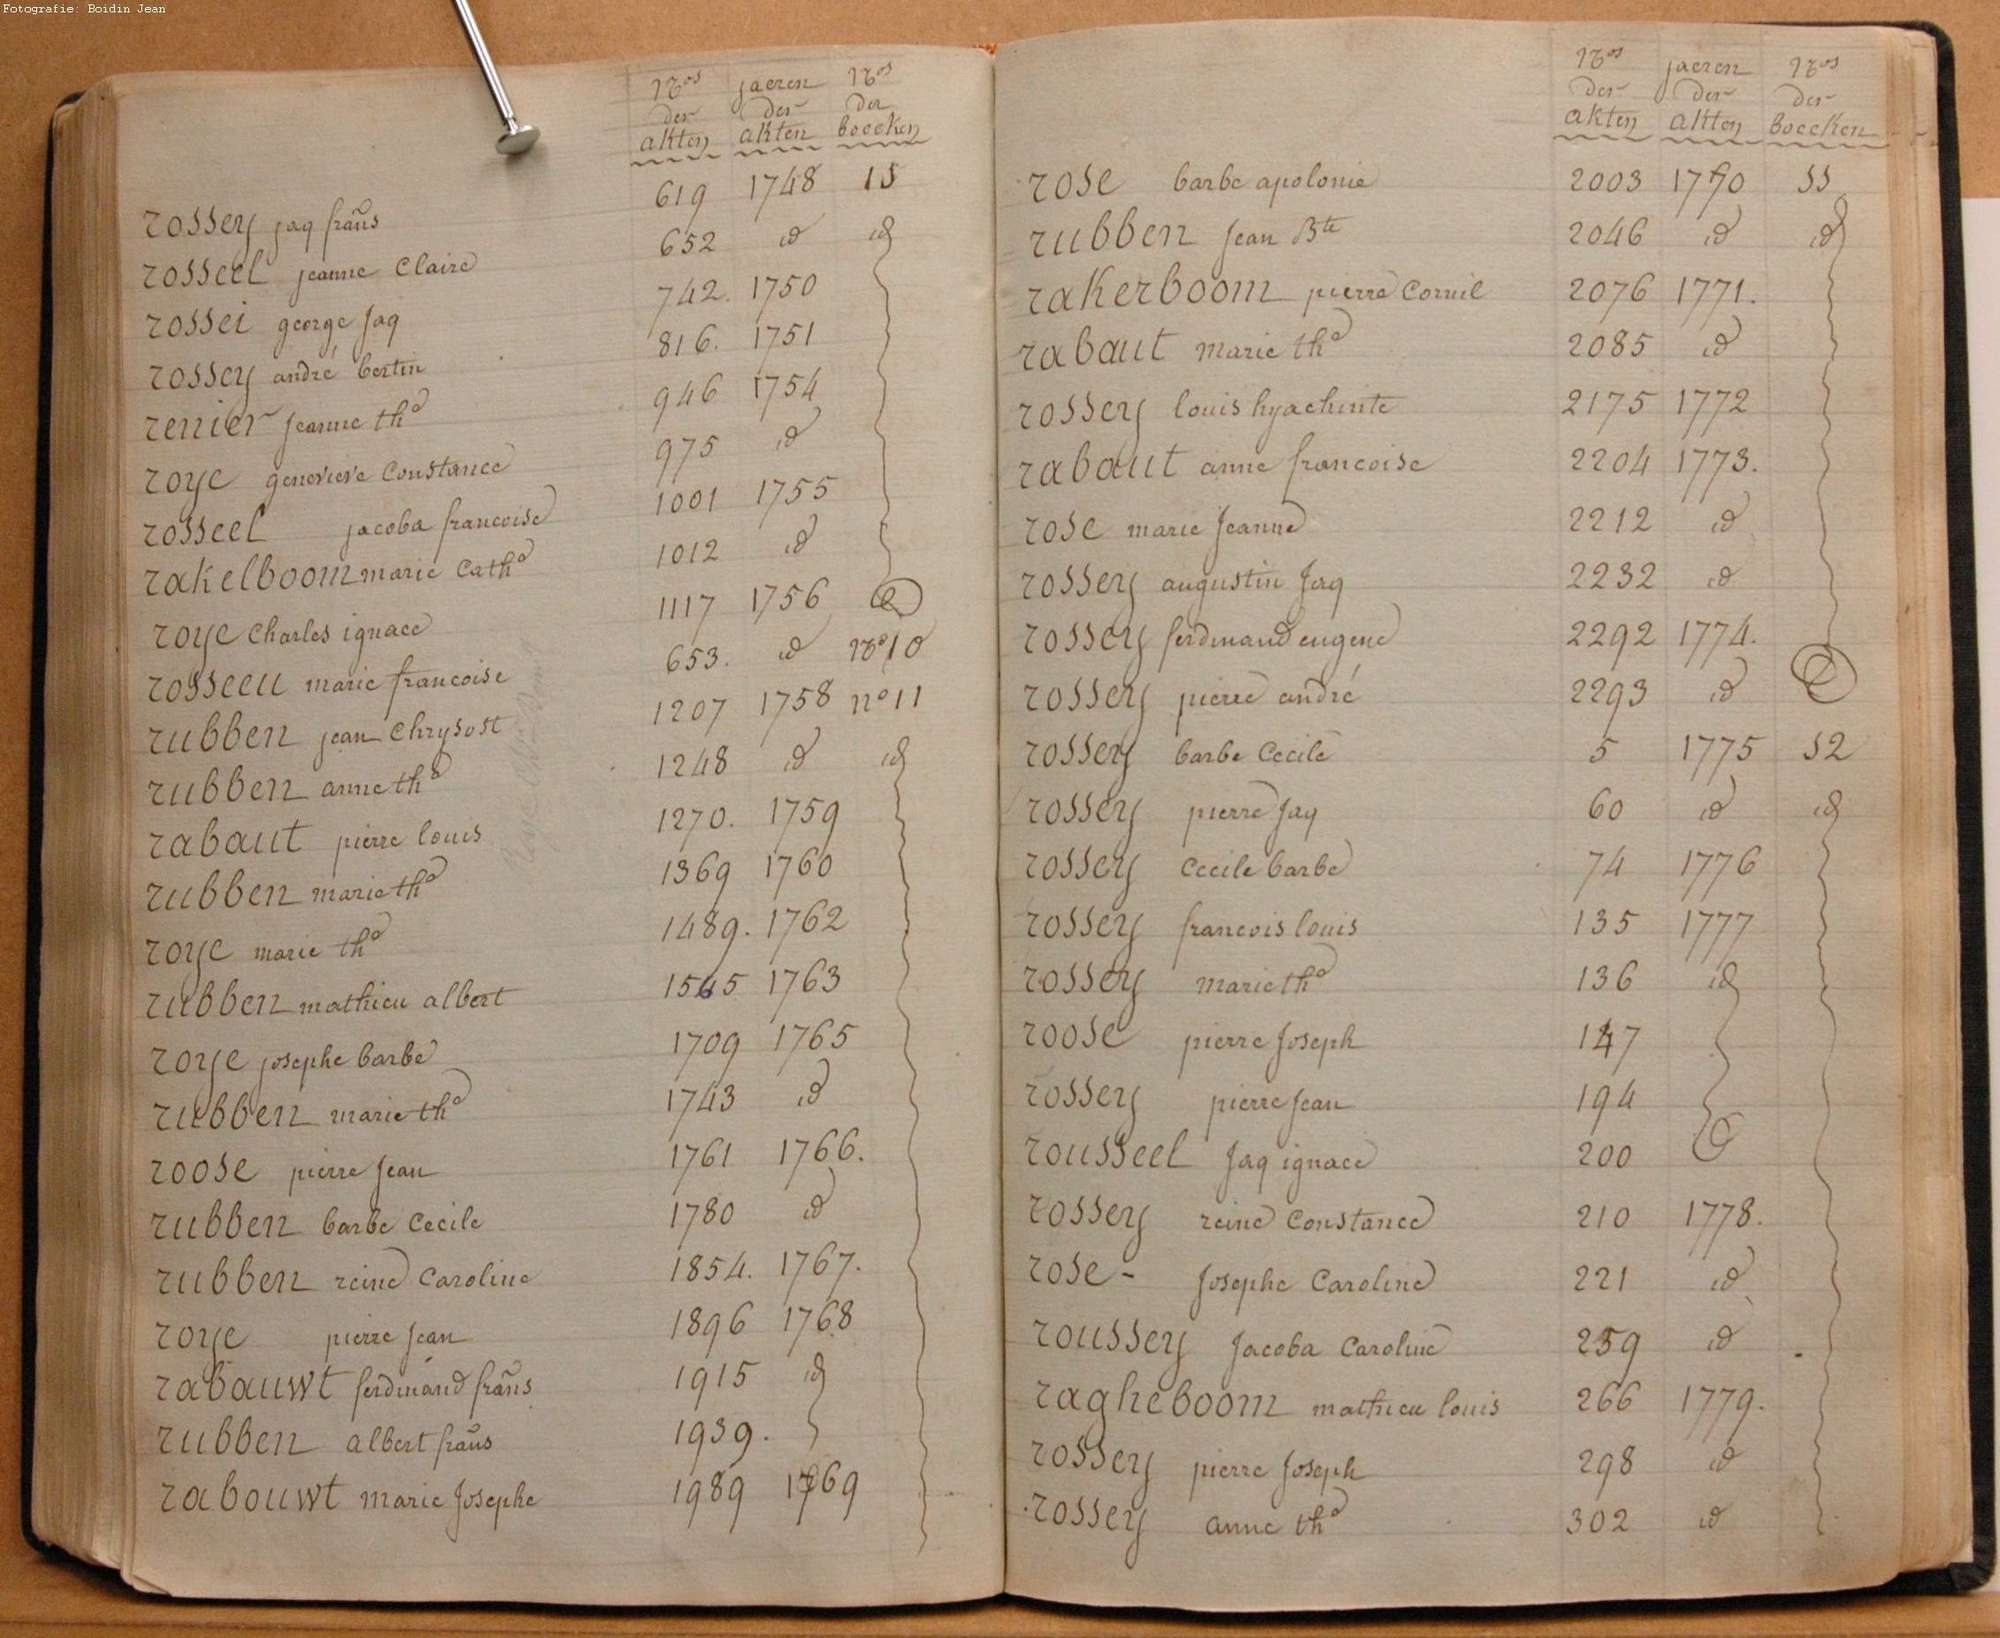 Fotografie: Boidin Jean
Nos jaeren Nos
der der der
akten akten boecken
rossey jaq frans 619 1748 15
rosseel jeanne Claire 652 id id
rossei george Jaq 742. 1750
rossey andré bertin 816. 1751
renier Jeanne the 946 1754
roye genevieve Constance 975 id
rosseel jacoba francoise 1001 1755
rakelboom marie Cathe 1012 id
roye Charles ignace 1117 1756
rosseeu marie francoise 653. id No 10
rubben jean Chrysost 1207 1758 no 11
rubben anne the 1248 id id
rabaut pierre louis 1270. 1759
rubben marie the 1369 1760
roye marie the 1489. 1762
rubben mathieu albert 1545 1763
roye josephe barbe 1709 1765
rubben marie the 1743 id
roose pierre Jean 1761 1766.
rubben barbe Cecile 1780 id
rubben reine Caroline 1854. 1767.
roye pierre Jean 1896 1768
rabauwt ferdinand frans 1915 id
rubben albert frans 1939.
rabouwt marie Josephe 1989 1769
Nos jaeren Nos
der der der
akten akten boecken
rose barbe apolonie 2003 1770 11
rubben Jean Bte 2046 id id
rakerboom pierre Cornil 2076 1771.
rabaut marie the 2085 id
rossey louis hyachinte 2175 1772
rabaut anne francoise 2204 1773.
rose marie Jeanne 2212 id
rossey augustin Jaq 2232 id
rossey ferdinand eugene 2292 1774.
rossey pierre andré 2293 id
rossey barbe Cecile 5 1775 12
rossey pierre Jaq 60 id id
rossey Cecile barbe 74 1776
rossey francois louis 135 1777
rossey marie the 136 id
roose pierre Joseph 147
rossey pierre Jean 194
rousseel Jaq ignace 200
rossey reine Constance 210 1778.
rose - Josephe Caroline 221 id
roussey Jacoba Caroline 259 id
ragheboom mathieu louis 266 1779.
rossey pierre Joseph 298 id
rossey anne the 302 id